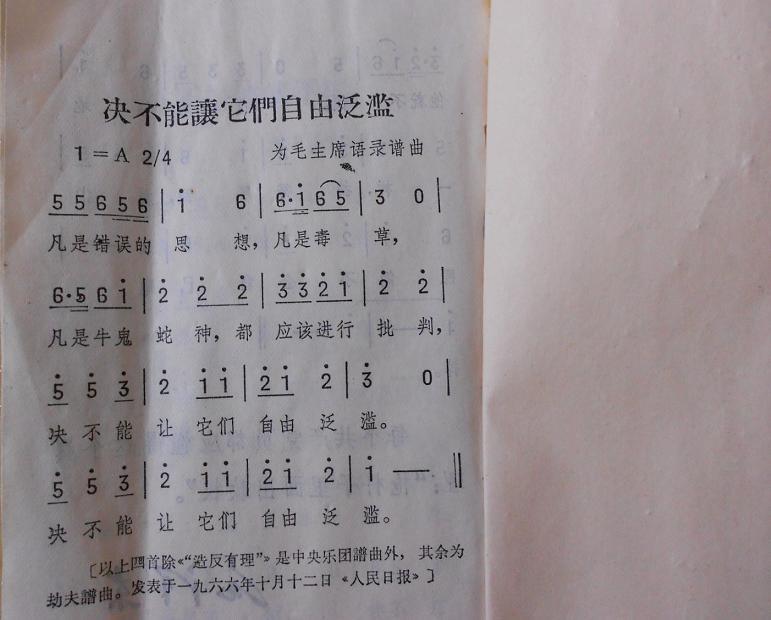 决不能讓它們自由泛滥
1=A 2/4 为毛主席语录谱曲
5 5 6 5 6 | i 6 | 6·i 6 5 | 3 0 |
凡是错误的 思 想,凡是毒 草,
6·5 6 i | 2̇ 2̇ 2̇ | 3̇ 3̇ 2̇ i | 2̇ 2̇ |
凡是牛鬼 蛇 神,都 应该进行 批 判,
5̇ 5̇ 3̇ | 2̇ i i | 2̇ i 2̇ | 3̇ 0 |
决 不 能 让 它们 自由 泛 滥。
5̇ 5̇ 3̇ | 2̇ i i | 2̇ i 2̇ | i — ‖
决 不 能 让 它们 自由 泛 滥。
〔以上四首除《“造反有理”》是中央乐团譜曲外,其余为
劫夫譜曲。发表于一九六六年十月十二日《人民日报》〕